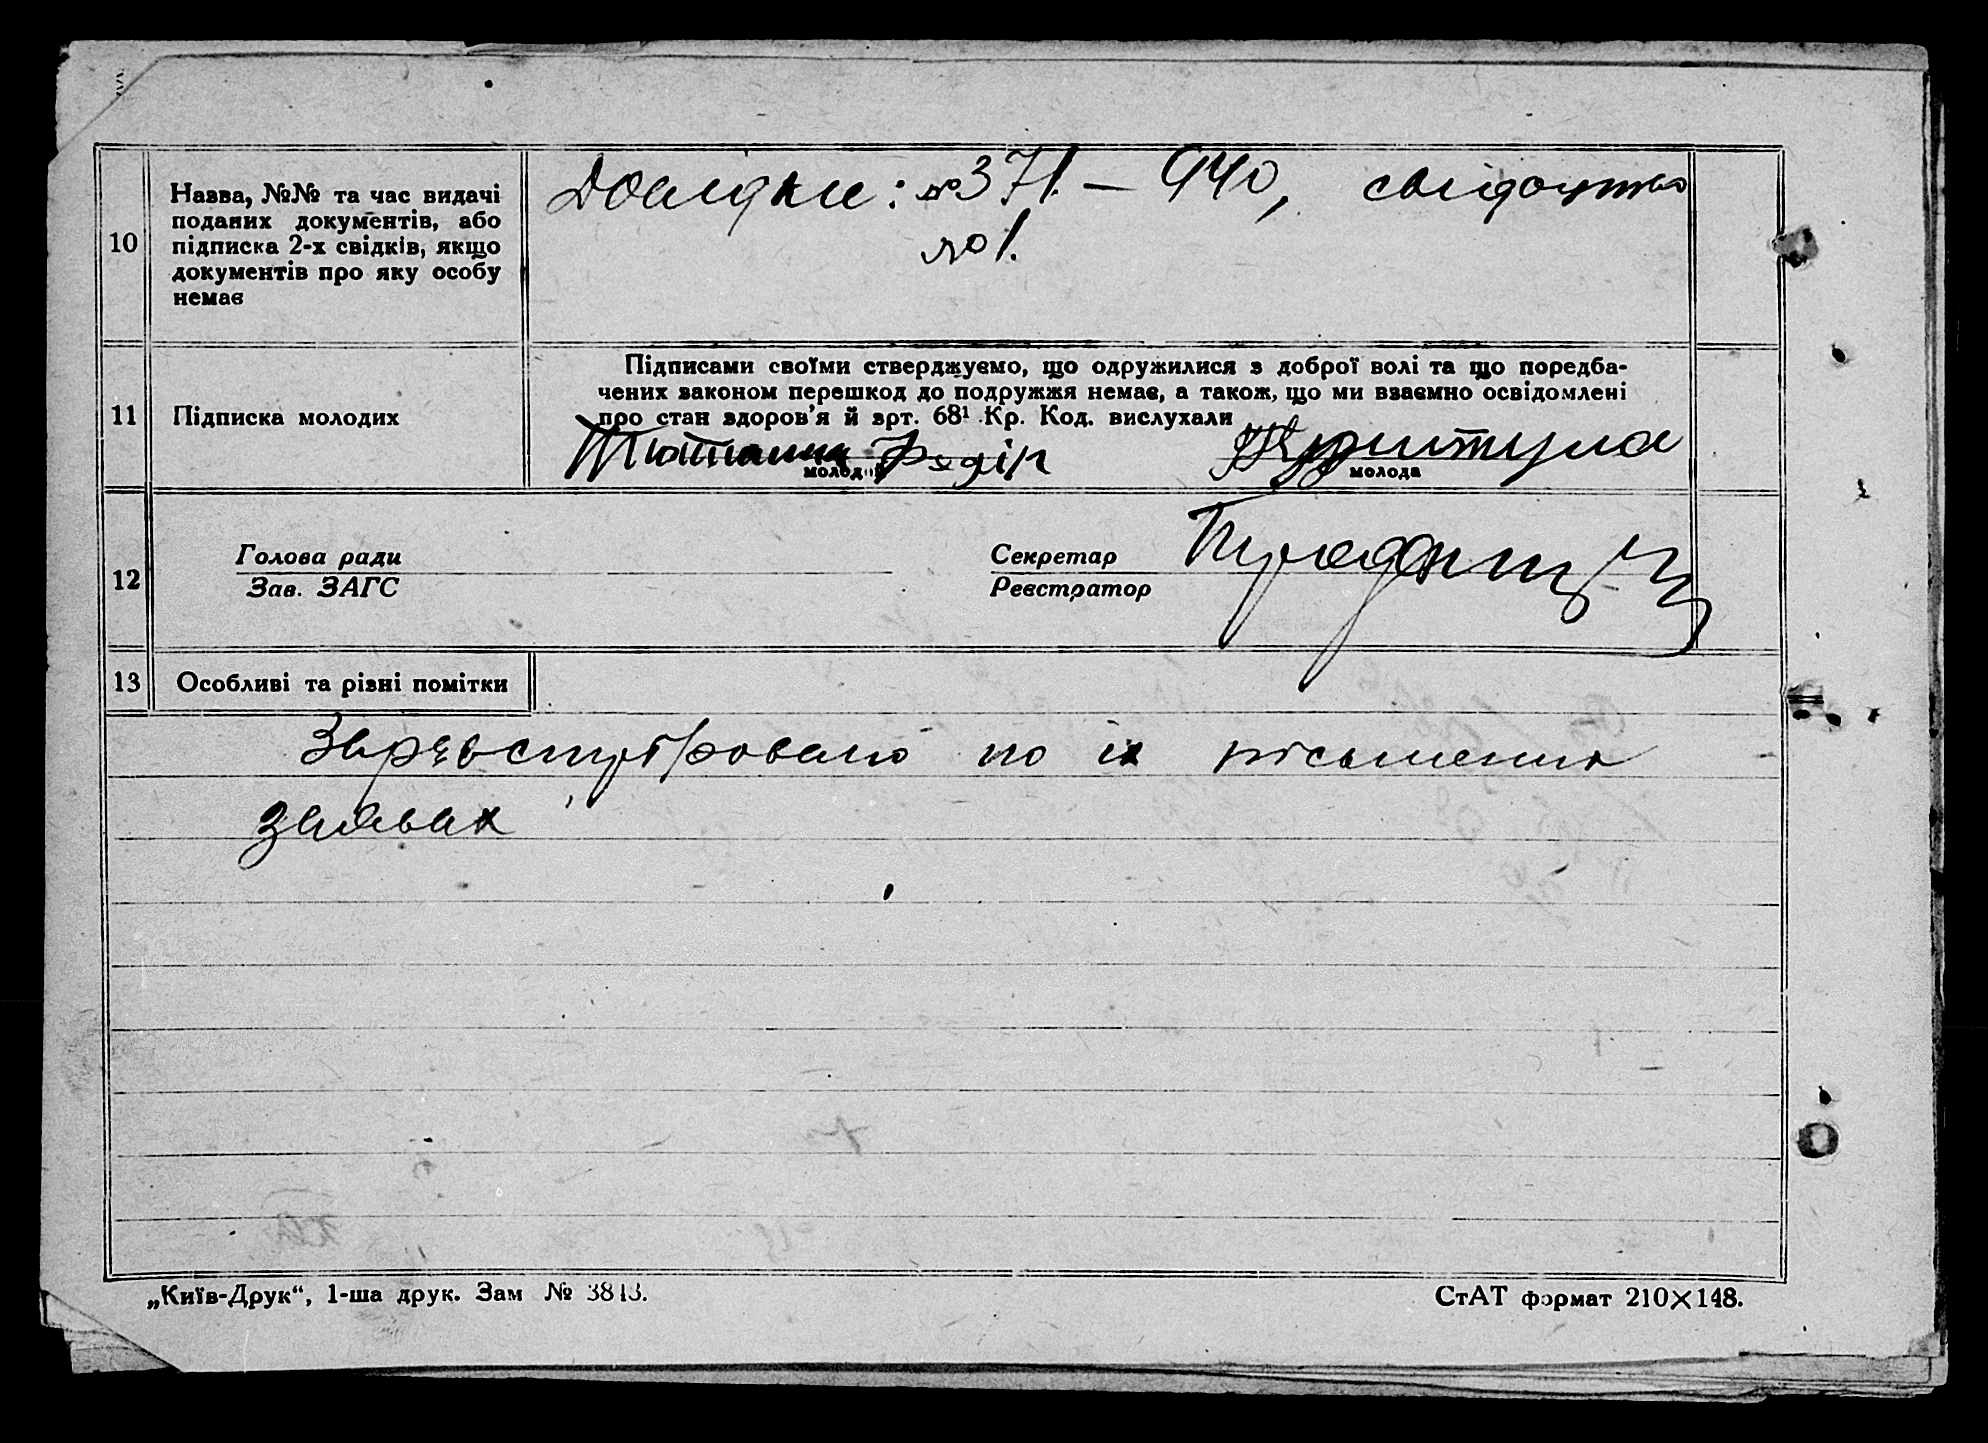 10
Назва, №№ та час видачі
поданих документів, або
підписка 2-х свідків, якщо
документів про яку особу
немає
Довідки: № 371. – 940, свідоцтво
№ 1.
11
Підписка молодих
Підписами своїми стверджуємо, що одружилися з доброї волі та що поредба-
чених законом перешкод до подружжя немає, а також, що ми взаємно освідомлені
про стан здоров'я й арт. 68¹ Кр. Код. вислухали
Федір
молодий
молода
12
Голова ради
Зав. ЗАГС
Секретар
Реєстратор
13
Особливі та різні помітки
Зареєстріровано по їх письмених
заявах
„Київ-Друк“, 1-ша друк. Зам № 3813.
СтАТ формат 210×148.